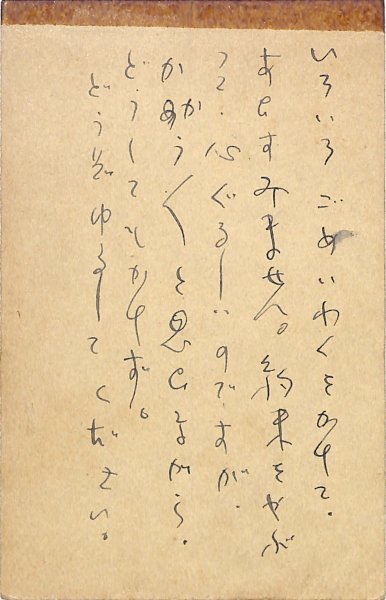 いろいろごめいわくをかけて、
あひすみません。約束をやぶ
つて、心ぐるしいのですが、
かかう〱と思ひながら、
どうしてもかけず。
どうぞゆるしてください。